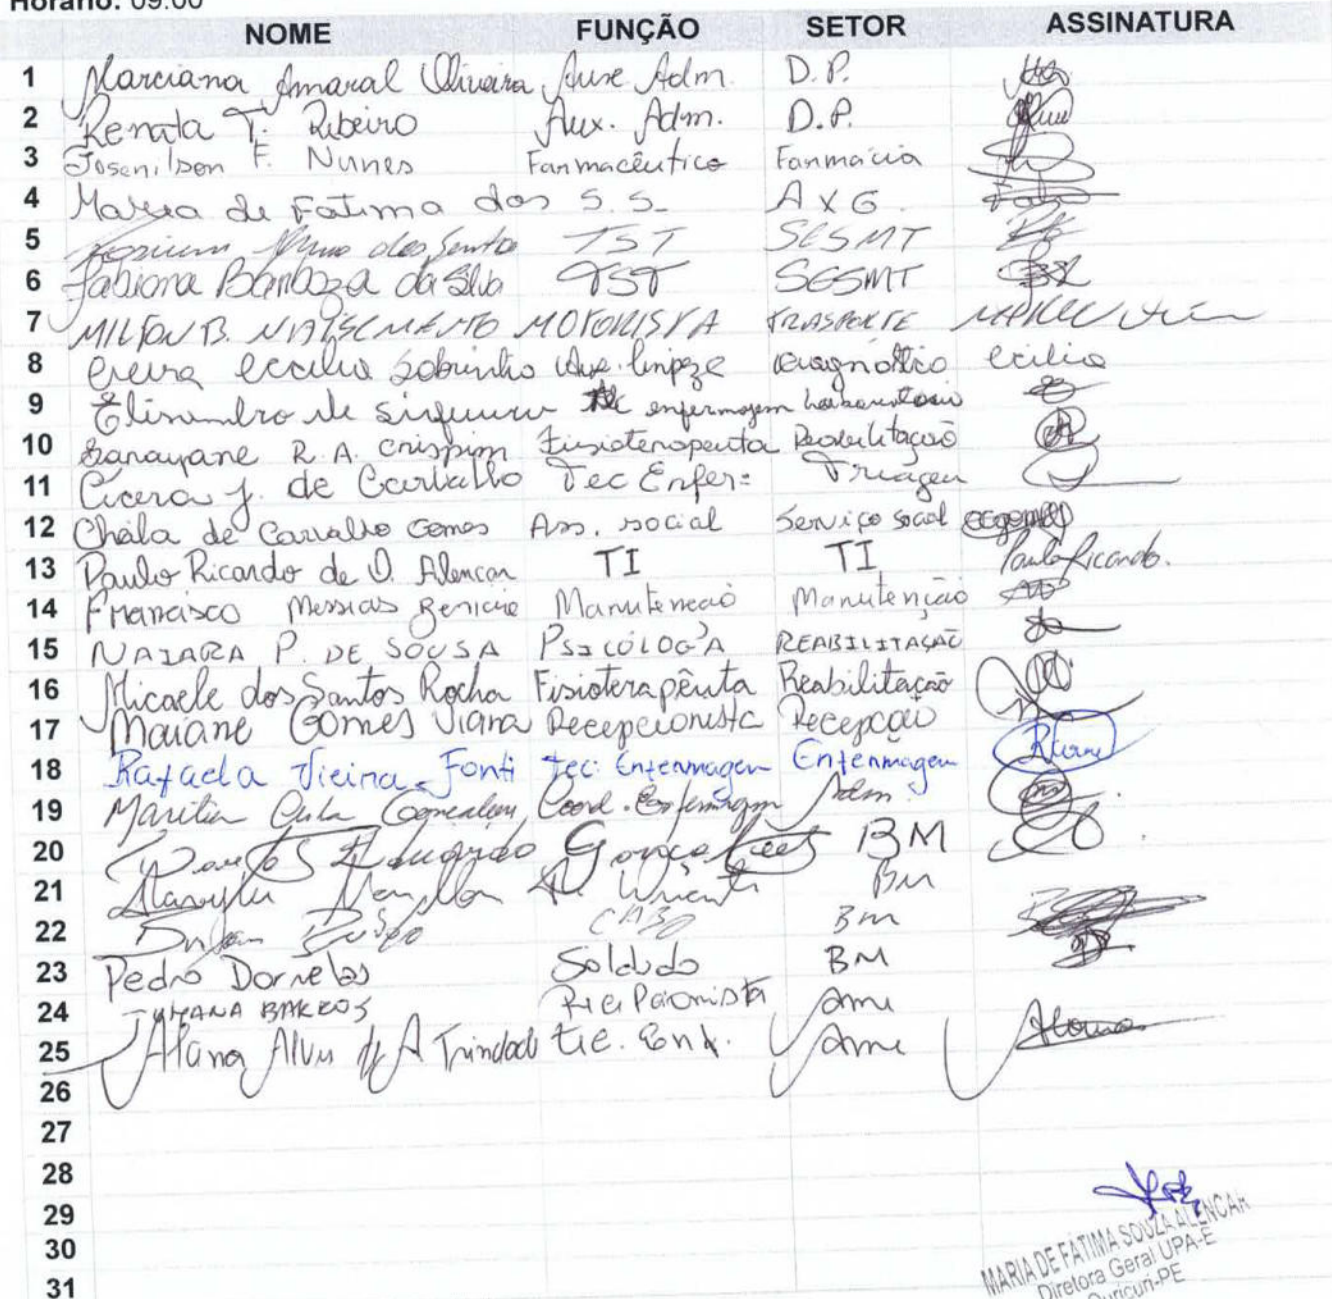 Horário: 09:00
NOME FUNÇÃO SETOR ASSINATURA
1 Marciana Amaral Oliveira Auxe Adm. D.P.
2 Renata T. Ribeiro Aux. Adm. D.P.
3 Josenilson F. Nunes Farmacêutico Farmácia
4 Maria de Fatima dos S. S. A X G.
5 dos Santos TST SESMT
6 Fabiana Barboza da Silva TST SESMT
7 MILTON B. NATSCMENTO MOTORISTA TRASPORTE
8 Cecilio Sobrinho Aux. limpeze diagnóstico Cecilio
9 de enfermagem Laboratorio
10 R. A. Crispim Fisioterapeuta Reabilitação
11 Cicera J. de Carvalho Tec Enfer: Triagem
12 Cheila de Carvalho Gomes Ass. social Serviço social
13 Paulo Ricardo de O. Alencar TI TI Paulo Ricardo.
14 Francisco Messias Benicio Manutencão Manutenção
15 NAIARA P. DE SOUSA PSICÓLOGA REABILITAÇÃO
16 Micaele dos Santos Rocha Fisioterapêuta Reabilitação
17 Maiane Gomes Viana Recepcionista Recepção
18 Rafaela Vieira Fonti tec: Enfermagem Enfermagem
19 Marilia Goncalves Coord. Enfermagem Adm
20 Eduardo Gonçalves BM
21 BM
22 CABO BM
23 Pedro Dornelas Soldado BM
24 JULIANA BARROS Ame
25 Alana Alves de A Trindade tec. Enf. Ame
26
27
28
29
30
31
MARIA DE FÁTIMA SOUZA ALENCAR
Diretora Geral UPA-E
Ouricuri-PE